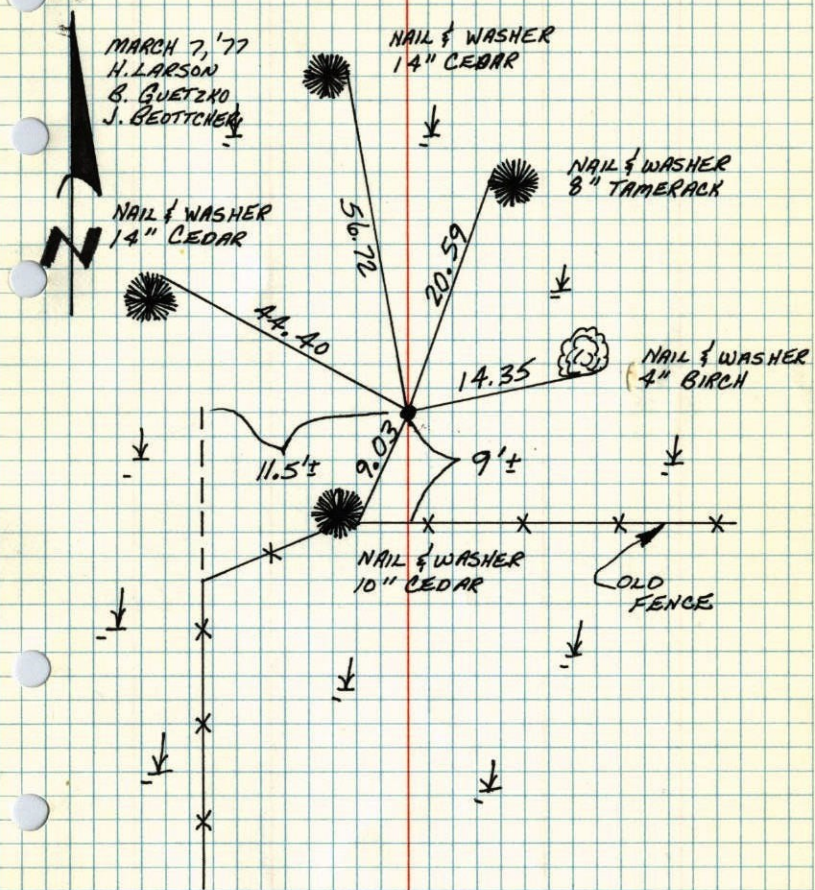 MARCH 7, '77
H. LARSON
B. GUETZKO
J. BEOTTCHER
NAIL & WASHER
14" CEDAR
NAIL & WASHER
8" TAMERACK
N
NAIL & WASHER
14" CEDAR
56.72
20.59
44.40
14.35
NAIL & WASHER
4" BIRCH
11.5'±
9.03
9'±
NAIL & WASHER
10" CEDAR
OLD
FENCE